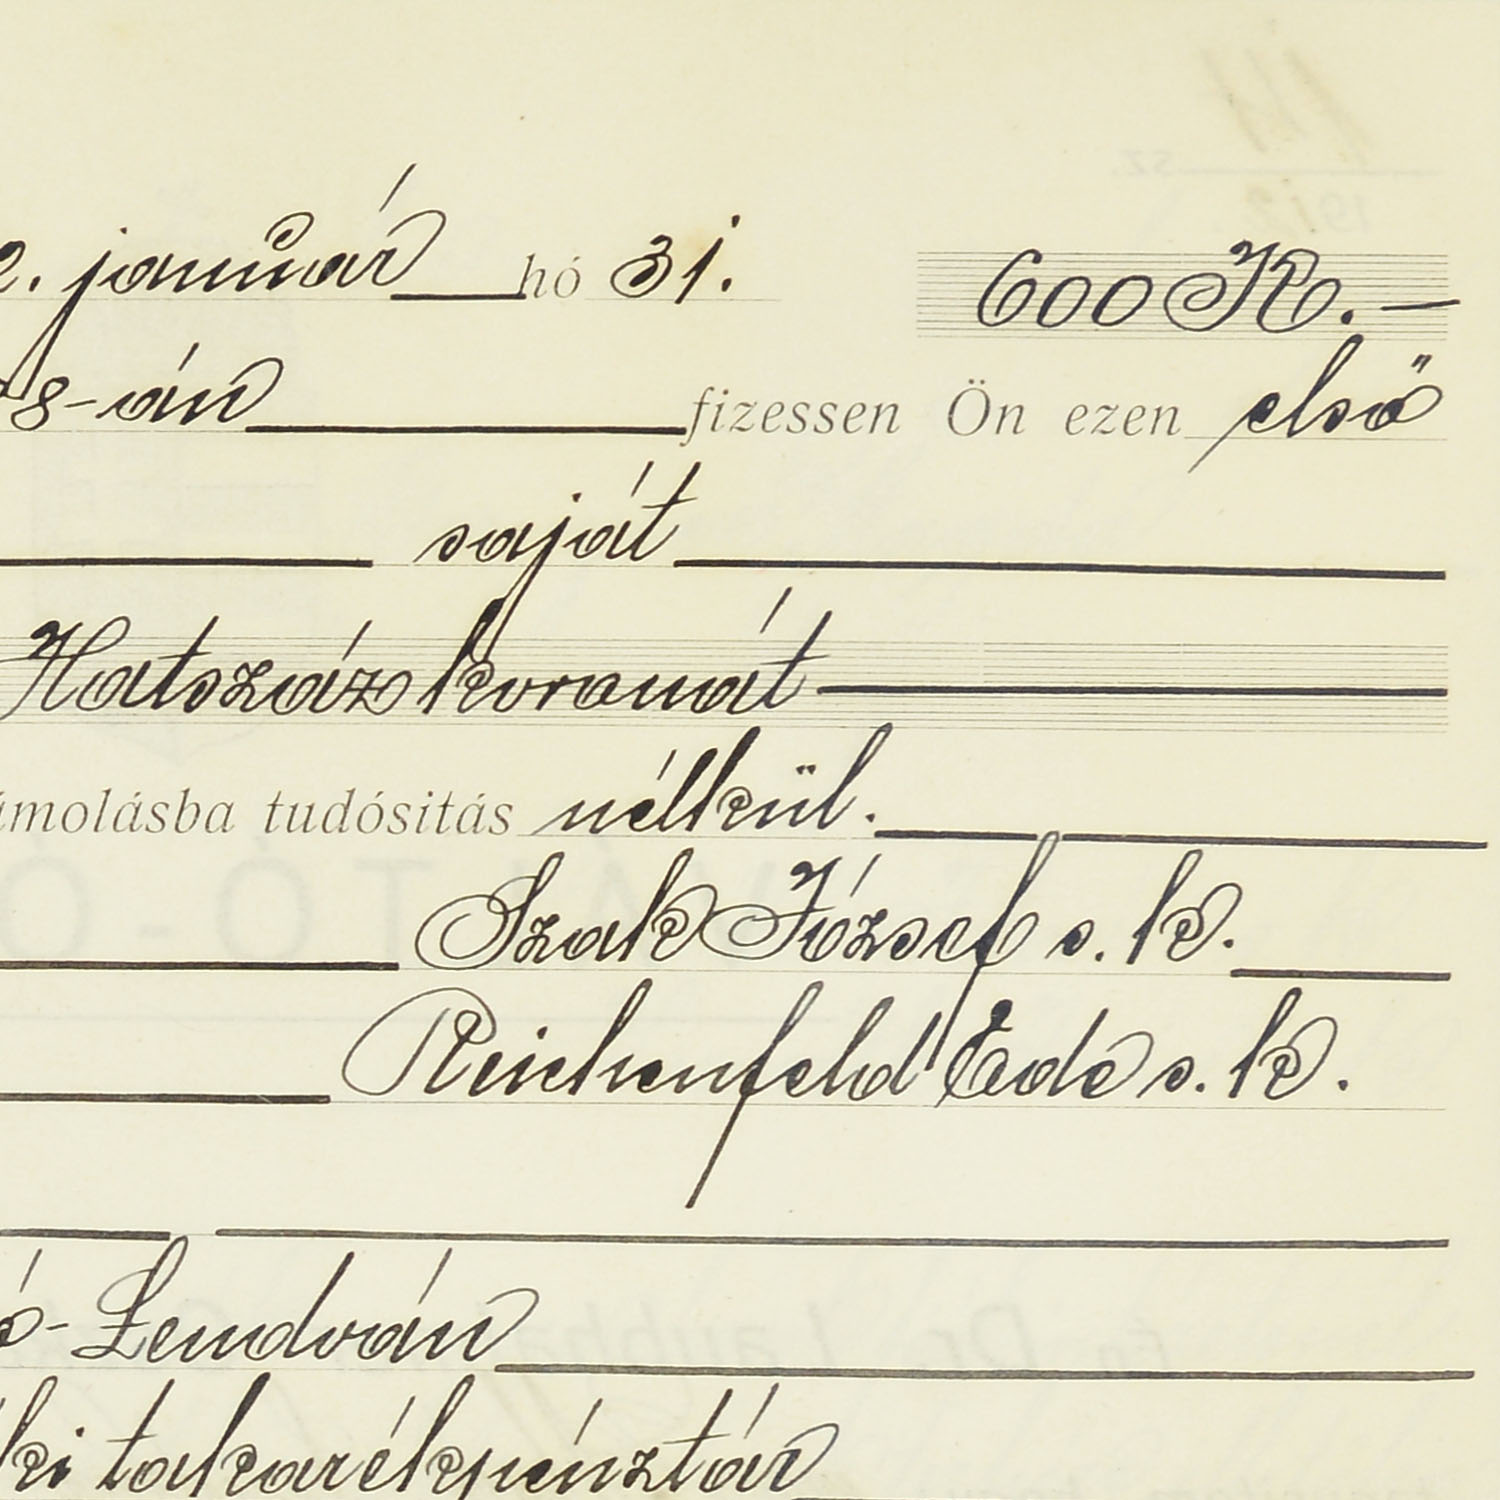 2. január hó 31. 600 K. —
28-án fizessen Ön ezen első
saját
Hatszáz koronát
ámolásba tudósitás nélkül.
Szak József s. k.
Reichenfeld Ede s. k.
ó-Lendván
ki takarékpénztár